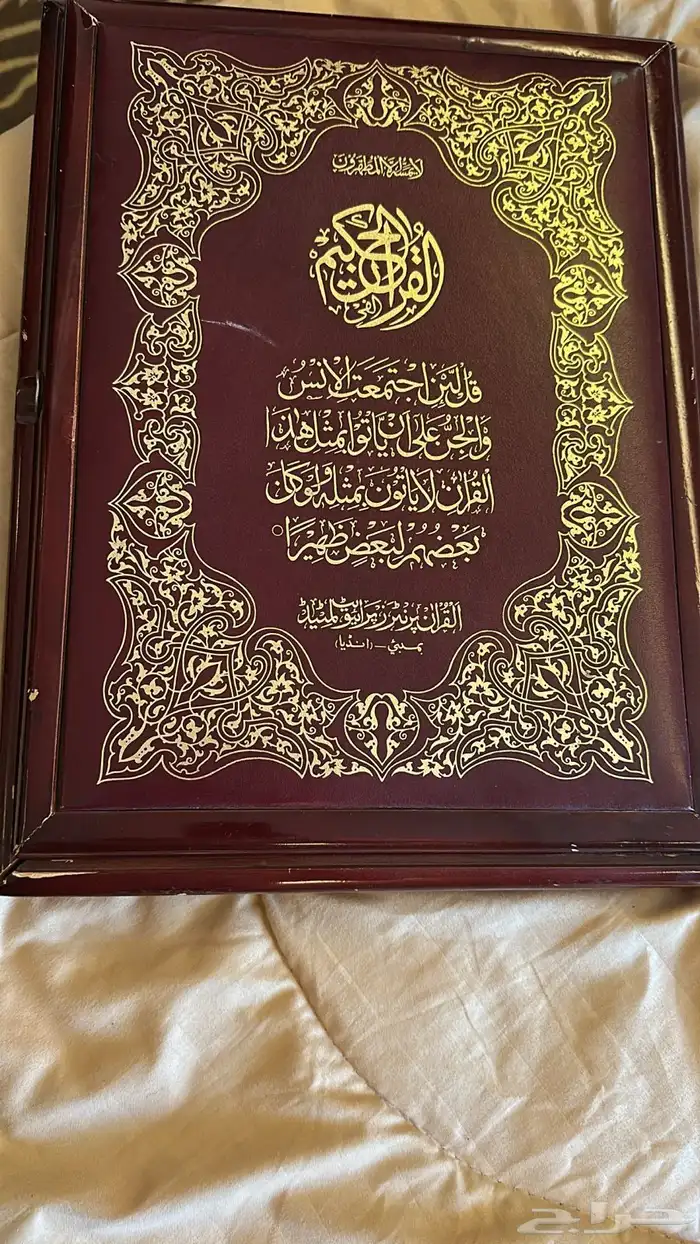 لا يمسه الا المطهرون
القرآن الحكيم
الفي
قُل لَّئِنِ اجْتَمَعَتِ الْاِنْسُ
وَالْجِنُّ عَلٰى اَنْ يَّاتُوْا بِمِثْلِ هٰذَا
الْقُرْاٰنِ لَا يَاتُوْنَ بِمِثْلِهٖ وَلَوْ كَانَ
بَعْضُهُمْ لِبَعْضٍ ظَهِيْرًا
القرآن پرنٹرز پرائیویٹ لمٹیڈ
بمبئي - (انڈیا)
حراج